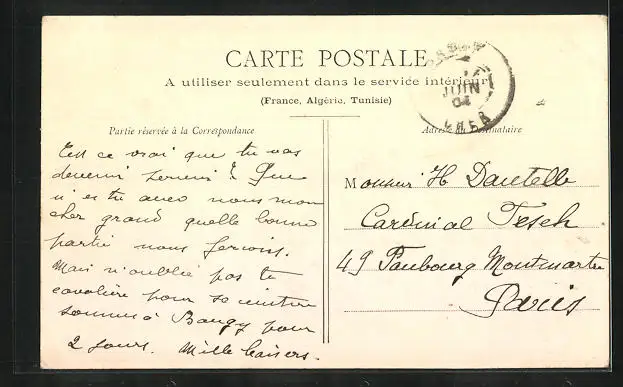 CARTE POSTALE
A utiliser seulement dans le service intérieur
(France, Algérie, Tunisie)
JUIN
04
CHER
Partie réservée à la Correspondance
Est ce vrai que tu vas
devenir
n'es tu avec nous mon
cher grand quelle bonne
partie nous ferions.
Mais n'oublie pas ta
cavalière pour
sommes à Baugy pour
2 jours. Mille baisers.
Adresse du Destinataire
Monsieur H Dautelle
Cardinal Fesch
49 Faubourg Montmartre
Paris